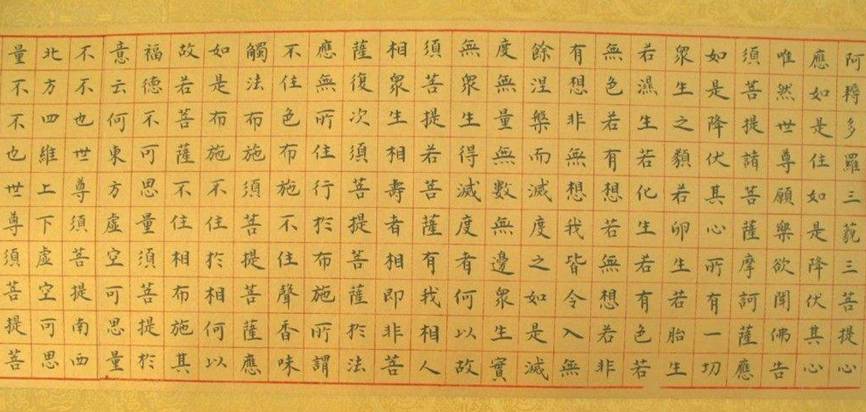 阿耨多羅三藐三菩提心
應如是住如是降伏其心
唯然世尊願樂欲聞佛告
須菩提諸菩薩摩訶薩應
如是降伏其心所有一切
眾生之類若卵生若胎生
若濕生若化生若有色若
無色若有想若無想若非
有想非無想我皆令入無
餘涅槃而滅度之如是滅
度無量無數無邊眾生實
無眾生得滅度者何以故
須菩提若菩薩有我相人
相眾生相壽者相即非菩
薩復次須菩提菩薩於法
應無所住行於布施所謂
不住色布施不住聲香味
觸法布施須菩提菩薩應
如是布施不住於相何以
故若菩薩不住相布施其
福德不可思量須菩提於
意云何東方虛空可思量
不不也世尊須菩提南西
北方四維上下虛空可思
量不不也世尊須菩提菩